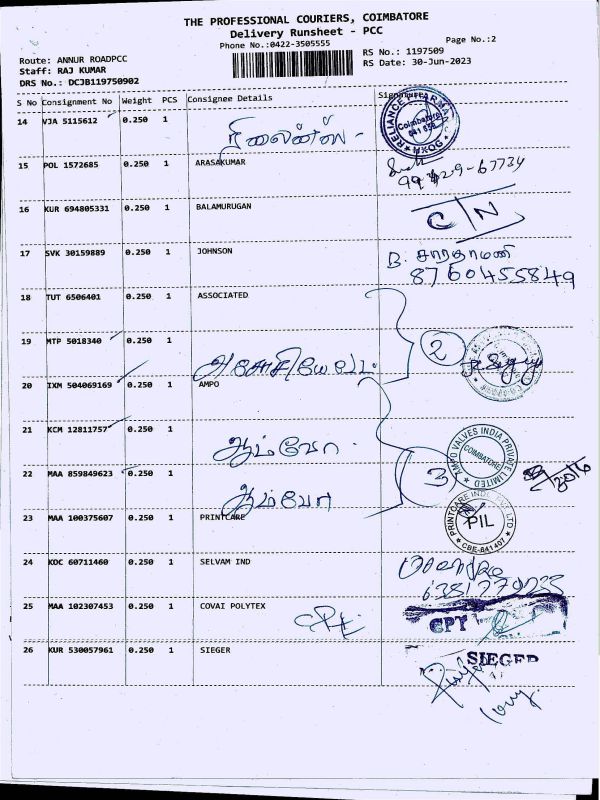 THE PROFESSIONAL COURIERS, COIMBATORE
Delivery Runsheet - PCC
Phone No.:0422-3505555
Page No.:2
Route: ANNUR ROADPCC
Staff: RAJ KUMAR
DRS No.: DCJB119750902
RS No.: 1197509
RS Date: 30-Jun-2023
S No Consignment No Weight PCS Consignee Details Signature
14 VJA 5115612 0.250 1 ரிலையன்ஸ்
RELIANCE Coimbatore 641
15 POL 1572685 0.250 1 ARASAKUMAR
16 KUR 694805331 0.250 1 BALAMURUGAN C/N
17 SVK 30159889 0.250 1 JOHNSON B. சாரதாமணி
8760455849
18 TUT 6506401 0.250 1 ASSOCIATED
19 MTP 5018340 0.250 1 2
அசோசியேட்
20 IXM 504069169 0.250 1 AMPO
21 KCM 12811757 0.250 1 ஆம்போ
AMPO VALVES INDIA PRIVATE LIMITED COIMBATORE
22 MAA 859849623 0.250 1 ஆம்போ 3
23 MAA 100375607 0.250 1 PRINTCARE
PRINTCARE PIL LTD CBE-641407
24 KOC 60711460 0.250 1 SELVAM IND
25 MAA 102307453 0.250 1 COVAI POLYTEX CPT
26 KUR 530057961 0.250 1 SIEGER SIEGER